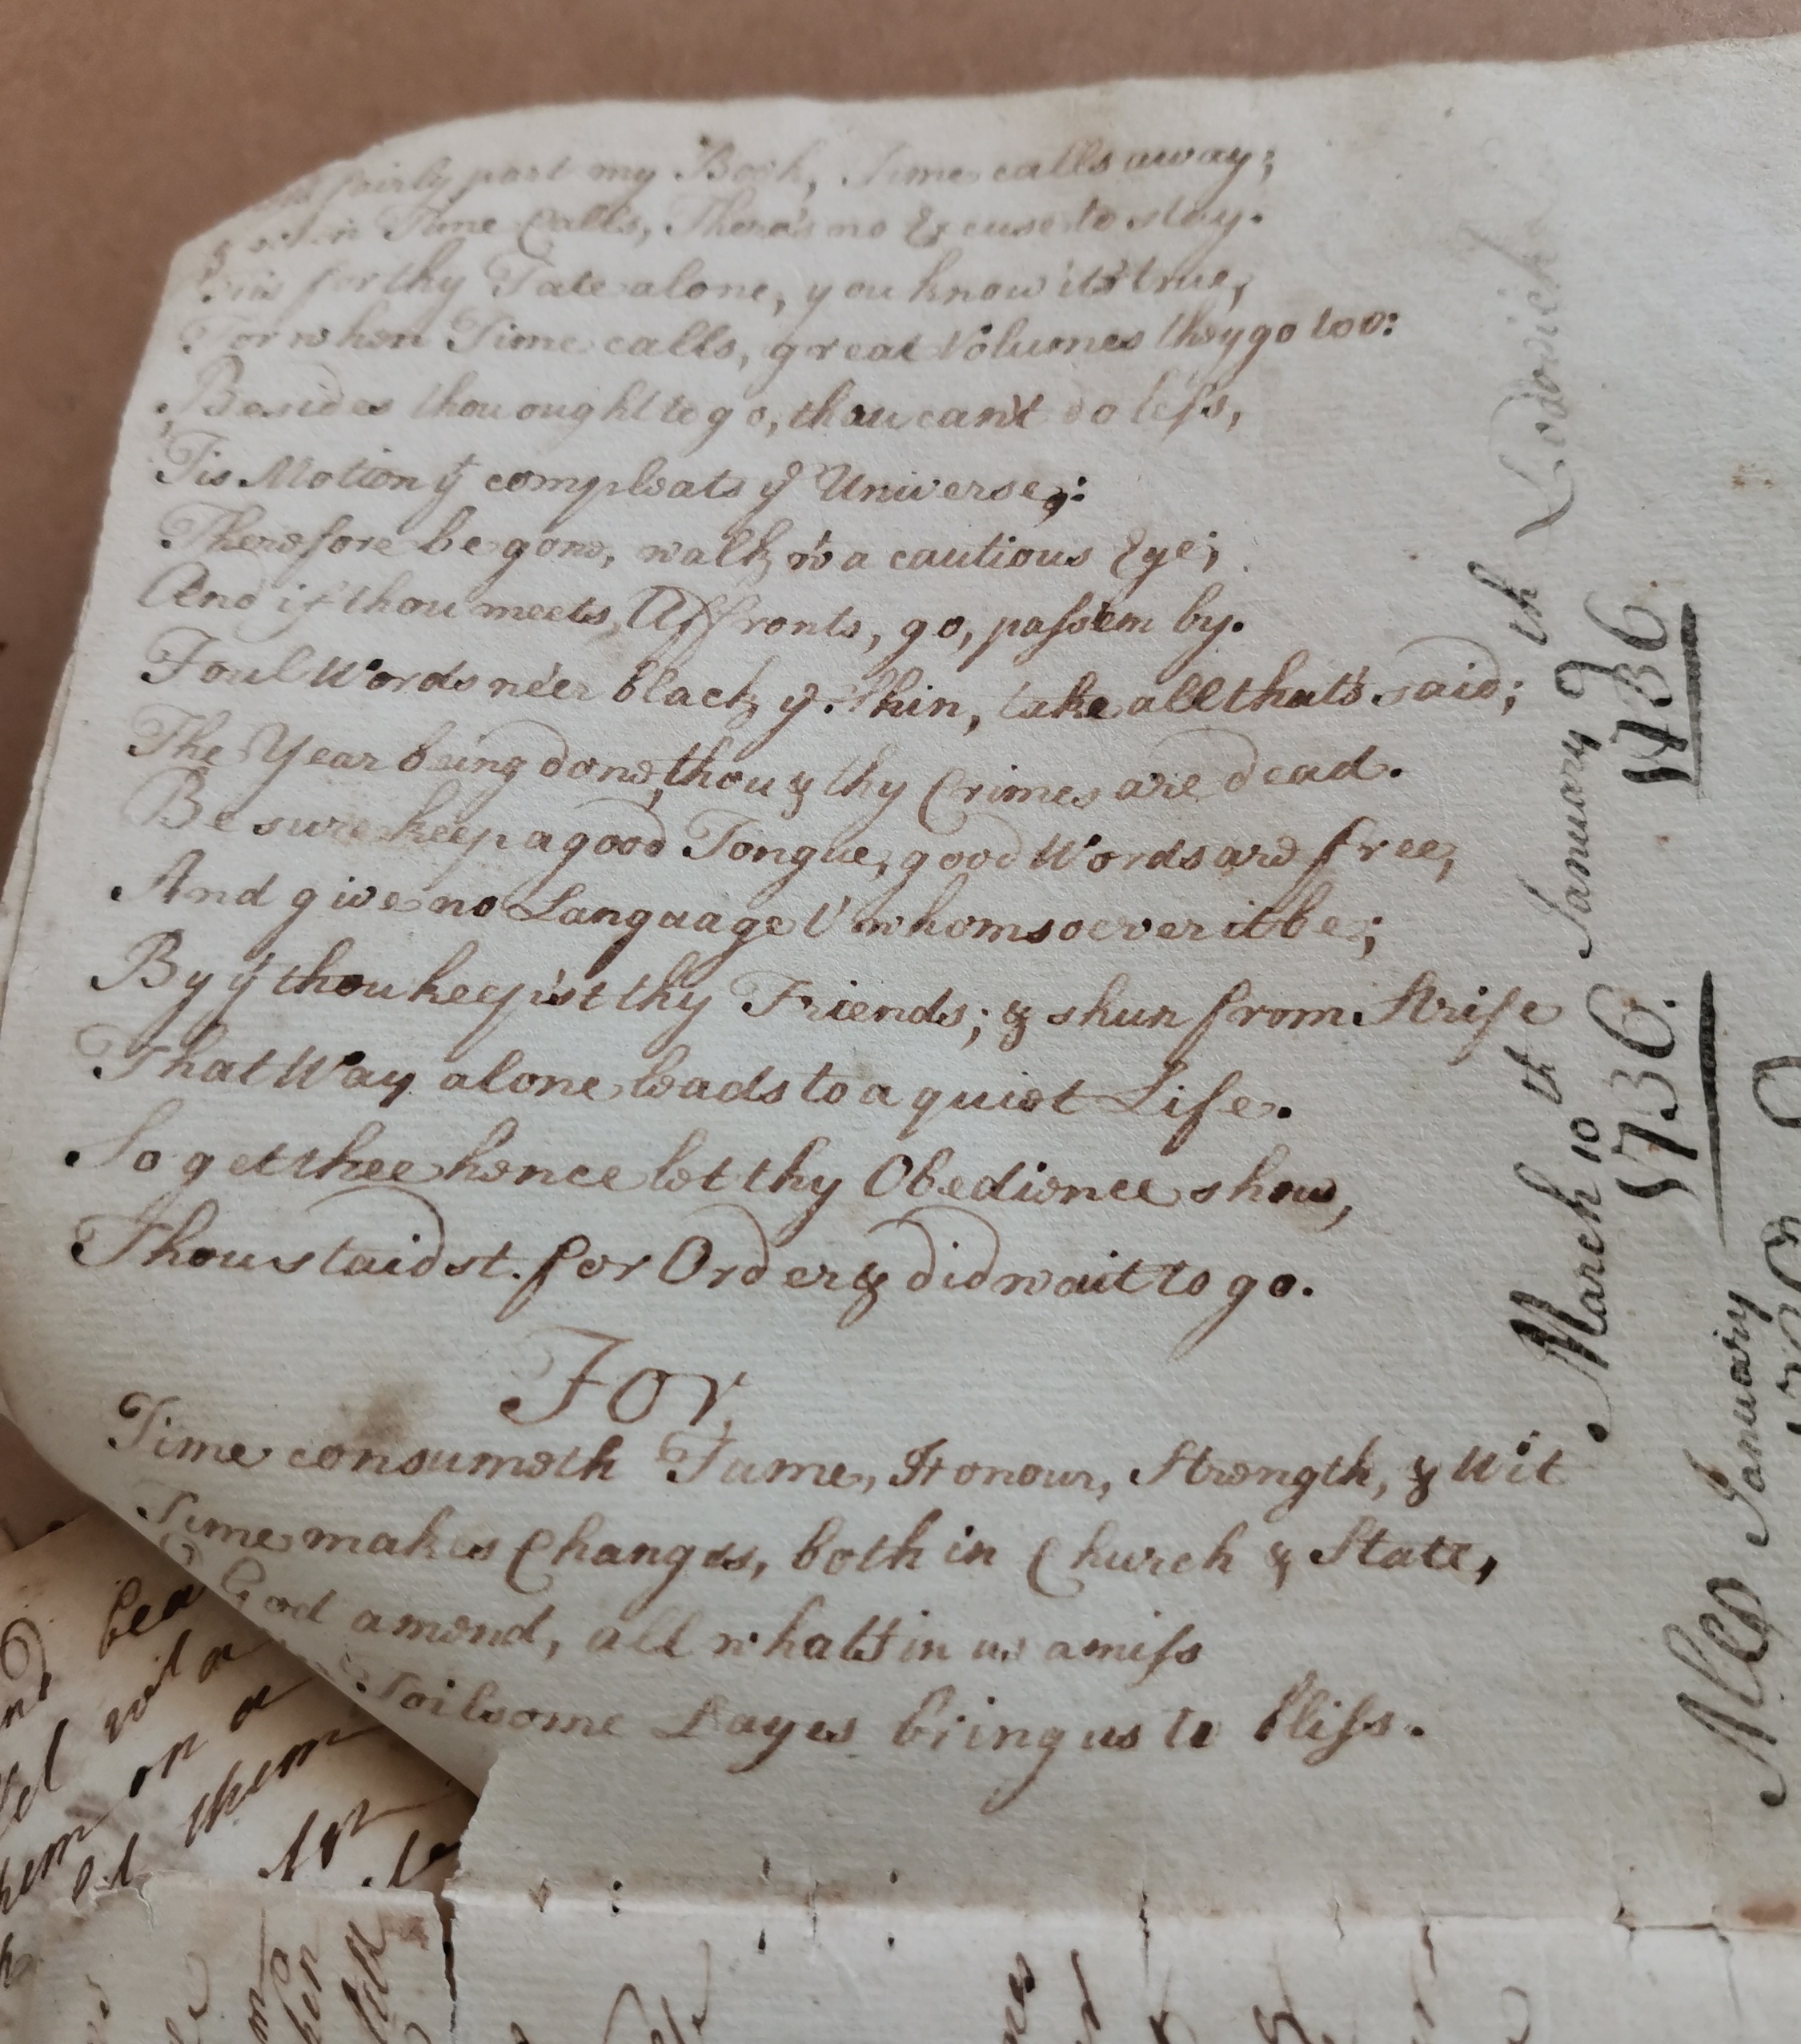 fairly part my Book, Time calls away;
Time Calls, There's no Excuse to stay.
for thy Fate alone, you know it's true,
For when Time calls, great Volumes they go too:
Besides thou ought to go, thou can't do less,
Tis Motion yt compleats ye Universe;:
Therefore be gone, walk wth a cautious Eye;
And if thou meets, Affronts, go, pass 'em by.
Foul Words ne'er black ye Skin, take all that's said;
The Year being done, thou & thy Crimes are dead.
Be sure keep a good Tongue, good Words are free,
And give no Language whomsoever it be;
By yt thou keep'st thy Friends; & shun from Strife
That Way alone leads to a quiet Life.
So get thee hence let thy Obedience show,
Thou staidst for Order & did wait to go.
For
Time consumeth Fame, Honour, Strength, & Wit
Time makes Changes, both in Church & State,
God amend, all what's in us amiss
Toilsome Dayes bring us to bliss.
Lodovick
January 9th
1736
March 10th
1736.
Allso January